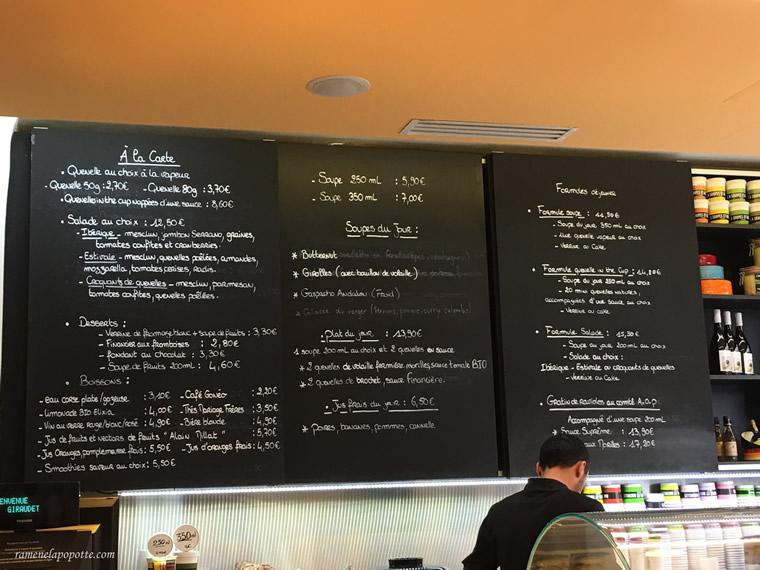 À la Carte
• Quenelle au choix à la vapeur
- Quenelle 50g : 2,70€ - Quenelle 80g : 3,70€
- Quenelles in the cup nappées d'une sauce : 8,60€
• Salade au choix : 12,50€
- Ibérique - mesclun, jambon Serrano, graines,
tomates confites et cranberries.
- Estivale - mesclun, quenelles poêlées, amandes,
mozzarella, tomates cerises, radis.
- Croquants de quenelles - mesclun, parmesan,
tomates confites, quenelles poêlées.
• Desserts :
- Verrine de fromage blanc + soupe de fruits : 3,30€
- Financier aux framboises : 2,80€
- fondant au chocolat : 3,30€
- Soupe de fruits 200mL : 4,60€
• Boissons :
- Eau corse plate/gazeuse : 3,10€ - Café Gonéo : 2,20€
- Limonade BIO Elixia : 4,00€ - Thés Mariage Frères : 3,50€
- Vin au verre rouge/blanc/rosé : 4,90€ - Bière blonde : 4,90€
- Jus de fruits et nectars de fruits "Alain Millat" : 5,70€
- Jus Oranges, pamplemousse frais : 5,50€ - Jus d'oranges frais : 4,50€
- Smoothies saveur au choix : 5,50€
- Soupe 250 mL : 5,90€
- Soupe 350 mL : 7,00€
Soupes du Jour :
* Butternut
* Girolles (avec bouillon de volaille)
* Gaspacho Andalou (Froid)
. plat du jour : 13,90€
1 soupe 200mL au choix et 2 quenelles en sauce
* 2 quenelles de volaille fermière, morilles, sauce tomate BIO
* 2 quenelles de brochet, sauce Financière.
. Jus frais du jour : 6,50€
* poires, bananes, pommes, cannelle
Formules déjeuner
• Formule soupe : 11,90€
- Soupe du jour 350 mL au choix
- Une quenelle vapeur au choix
- Verrine ou Cake
• Formule quenelle in the Cup :
- Soupe du jour 250 mL au choix
- 20 mini quenelles natures,
accompagnées d'une sauce au choix
- Verrine ou Cake
• Formule Salade : 15,90€
- Soupe du jour 200mL au choix
- Salade au choix :
Ibérique - Estivale ou croquants de quenelles
- Verrine ou Cake.
• Gratin de ravioles au comté A.O.P
Accompagné d'une soupe 200mL
* Sauce Suprême : 13,90€
aux Morilles : 17,20€
ENVENUE
GIRAUDET
250 ml
350 ml
ramenelapopotte.com